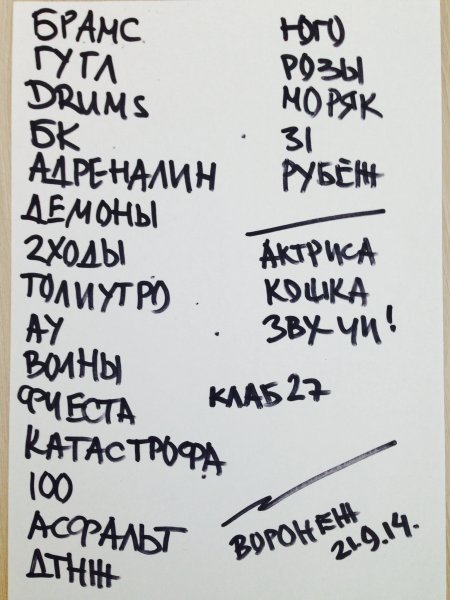 БРАМС
ГУГЛ
DRUMS
БК
АДРЕНАЛИН
ДЕМОНЫ
2ХОДЫ
ТОЛИУТРО
АУ
ВОЛНЫ
ФИЕСТА
КАТАСТРОФА
100
АСФАЛЬТ
ДТНЖ
ЮГО
РОЗЫ
МОРЯК
31
РУБЕЖ
АКТРИСА
КОШКА
ЗВУЧИ!
КЛАБ 27
ВОРОНЕЖ
21.9.14.